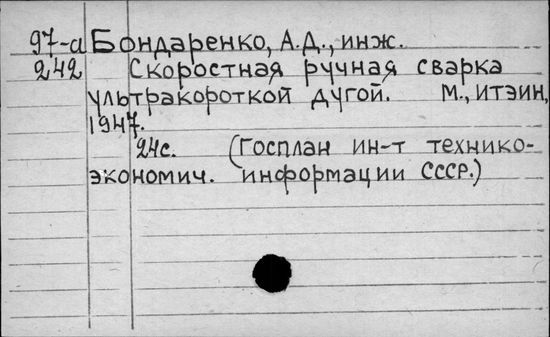 97-а Бондаренко, А.Д., инж.
242 Скоростная ручная сварка
ультракороткой дугой. М., ИТЭИН,
1947.
24с. (Госплан ин-т технико-
экономич. информации СССР.)